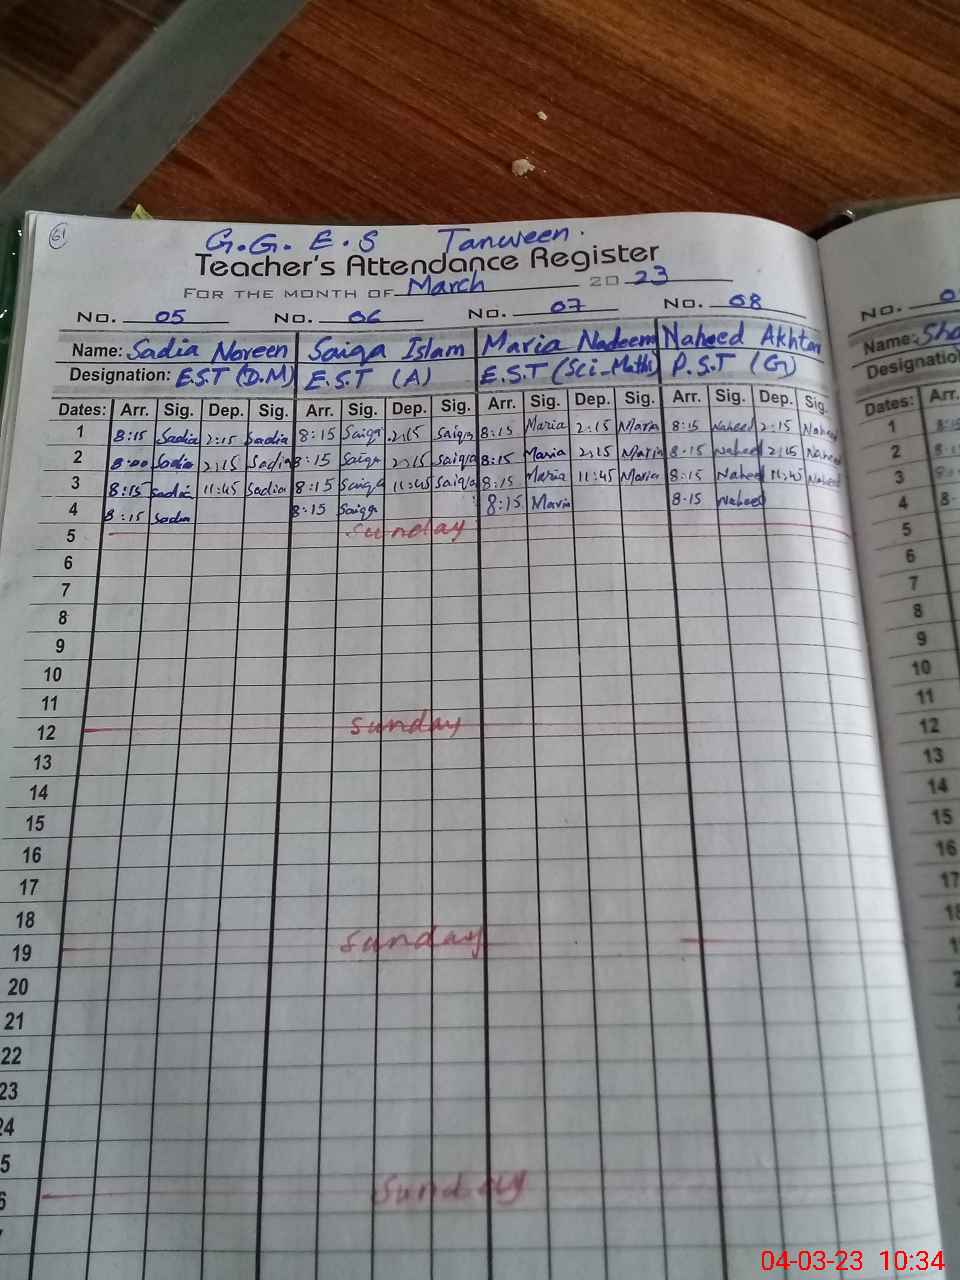 61
G.G. E.S Tanween.
Teacher's Attendance Register
FOR THE MONTH OF March 20 23
No. 05 No. 06 No. 07 No. 08 No.
Name: Sadia Noreen Saiqa Islam Maria Nadeem Naheed Akhtar Name:
Designation: E.S.T (D.M) E.S.T (A) E.S.T (Sci-Math) P.S.T (G)
Dates: Arr. Sig. Dep. Sig. Arr. Sig. Dep. Sig. Arr. Sig. Dep. Sig. Arr. Sig. Dep. Sig. Dates: Arr.
1 8:15 Sadia 2:15 Sadia 8:15 Saiqa 2:15 Saiqa 8:15 Maria 2:15 Maria 8:15 Naheed 2:15 Naheed 1 8:15
2 8:00 Sadia 2:15 Sadia 8:15 Saiqa 2:15 Saiqa 8:15 Maria 2:15 Maria 8:15 Naheed 2:15 Naheed 2
3 8:15 Sadia 11:45 Sadia 8:15 Saiqa 11:45 Saiqa 8:15 Maria 11:45 Maria 8:15 Naheed 11:45 Naheed 3
4 8:15 Sadia 8:15 Saiqa 8:15 Maria 8:15 Naheed 4
5 Sunday 5
6 6
7 7
8 8
9 9
10 10
11 11
12 Sunday 12
13 13
14 14
15 15
16 16
17 17
18 18
19 Sunday
20
21
22
23
24
5
6 Sunday
04-03-23 10:34